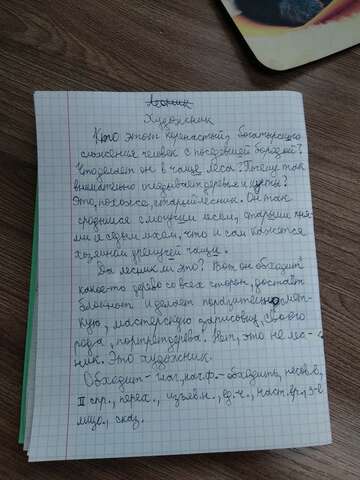 Лесник
Художник
Кто этот коренастый, богатырского
сложения человек с поседевшей бородой?
Что делает он в чаще леса? Почему так
внимательно оглядывает деревья и кусты?
Это, похоже, старый лесник. Он так
сроднился с могучим лесом, старыми пня-
ми и седым мхом, что и сам кажется
хозяином дремучей чащи.
Да лесник ли это? Вот он обходит
какое-то дерево со всех сторон, достаёт
блокнот и делает поразительно мет-
кую, мастерскую зарисовку, своего
рода, портрет дерева. Нет, это не лес-
ник. Это художник.
Обходит - глаг, нач.ф. - обходить, несов.в,
II спр., перех., изъяв.н., ед.ч., наст.вр., 3-е
лицо, сказ.